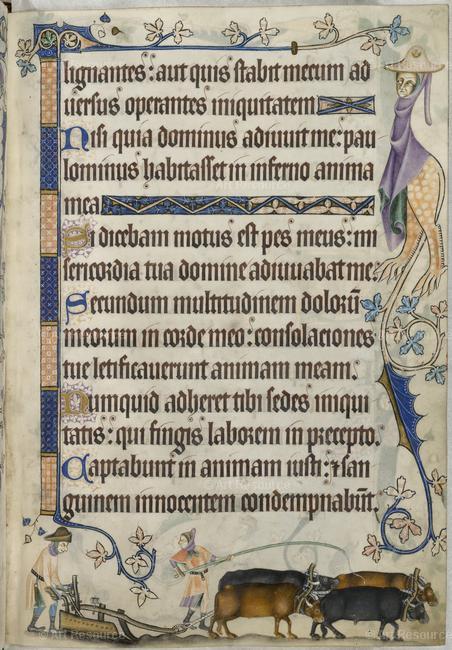 lignantes: aut quis stabit mecum ad
versus operantes iniquitatem
Nisi quia dominus adiuvit me: pau
lominus habitasset in inferno anima
mea
Si dicebam motus est pes meus: mi
sericordia tua domine adiuuabat me.
Secundum multitudinem dolorū
meorum in corde meo: consolaciones
tue letificauerunt animam meam.
Numquid adheret tibi sedes iniqui
tatis: qui fingis laborem in precepto.
Captabunt in animam iusti: ⁊ san
guinem innocentem condempnabūt.
© Art Resource
© Art Resource
© Art Resource